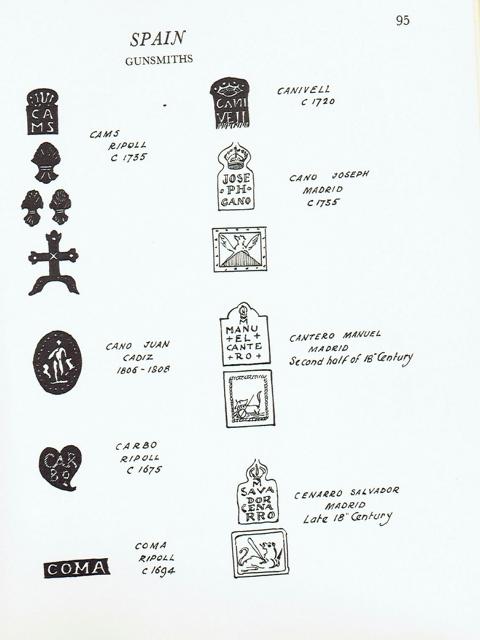 95
SPAIN
GUNSMITHS
CA
MS
CAMS
RIPOLL
C 1735
CANI
VELL
CANIVELL
C 1720
JOSE
PH
CANO
CANO JOSEPH
MADRID
C 1755
CANO JUAN
CADIZ
1806-1808
MANU
+EL+
CANTE
+RO+
CANTERO MANUEL
MADRID
Second half of 18th Century
CAR
BO
CARBO
RIPOLL
C 1675
M
SAVA
DOR
CENA
RRO
CENARRO SALVADOR
MADRID
Late 18th Century
COMA
COMA
RIPOLL
C 1694